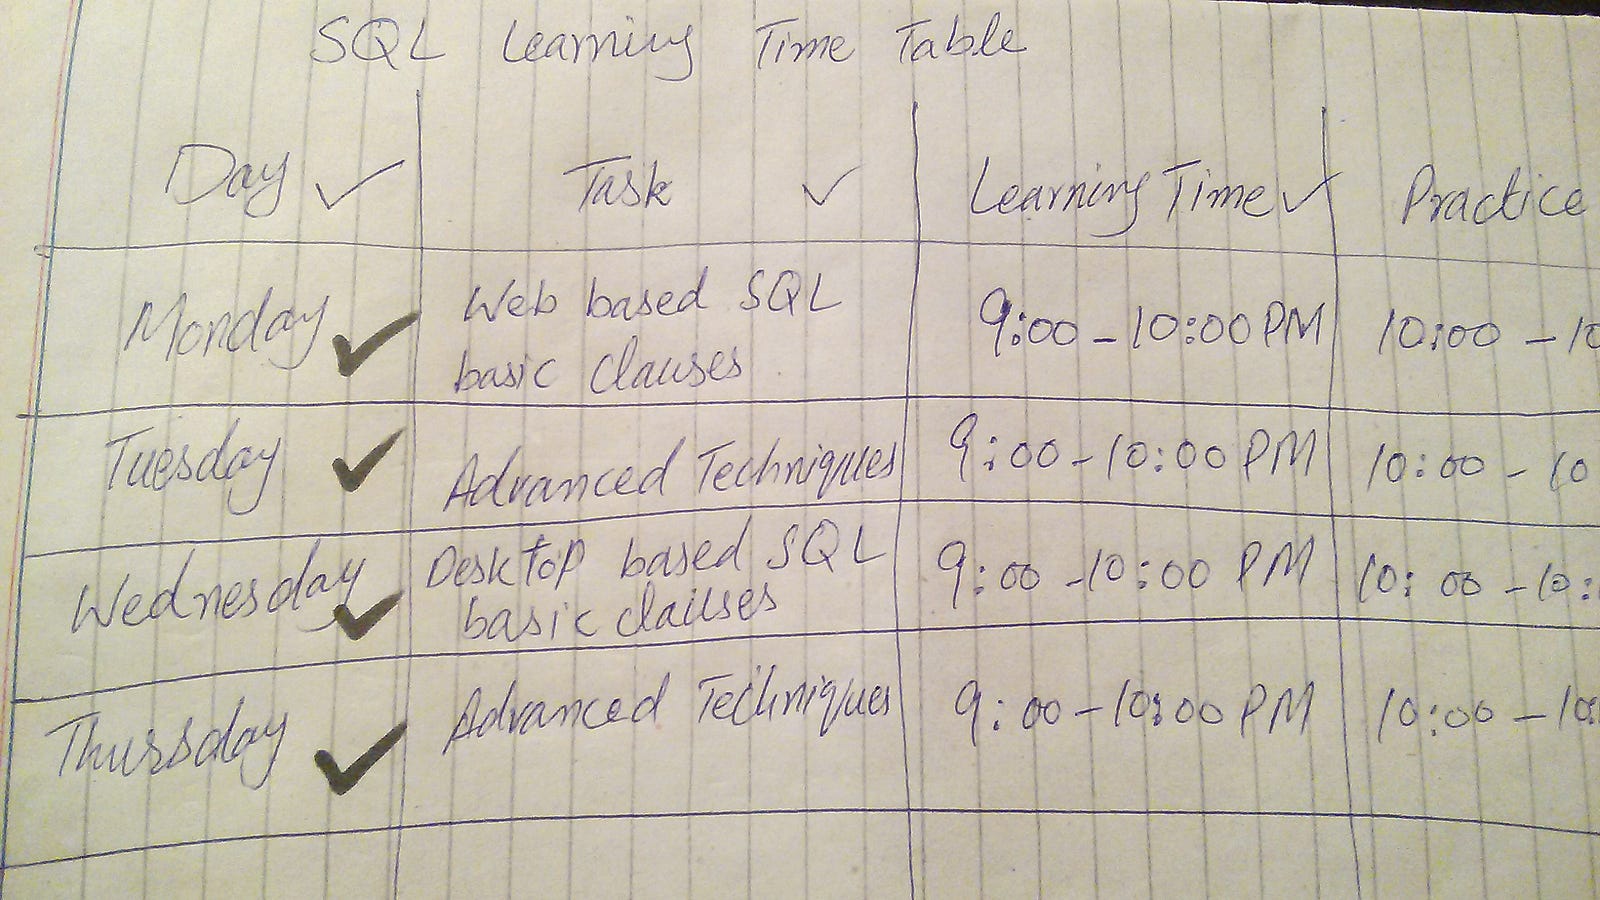 SQL Learning Time Table
Day ✓ Task ✓ Learning Time ✓ Practice
Monday ✓ Web based SQL 9:00 - 10:00 PM 10:00 - 10
basic clauses
Tuesday ✓ Advanced Techniques 9:00 - 10:00 PM 10:00 - 10
Wednesday ✓ Desktop based SQL 9:00 - 10:00 PM 10:00 - 10:
basic clauses
Thursday ✓ Advanced Techniques 9:00 - 10:00 PM 10:00 - 10: